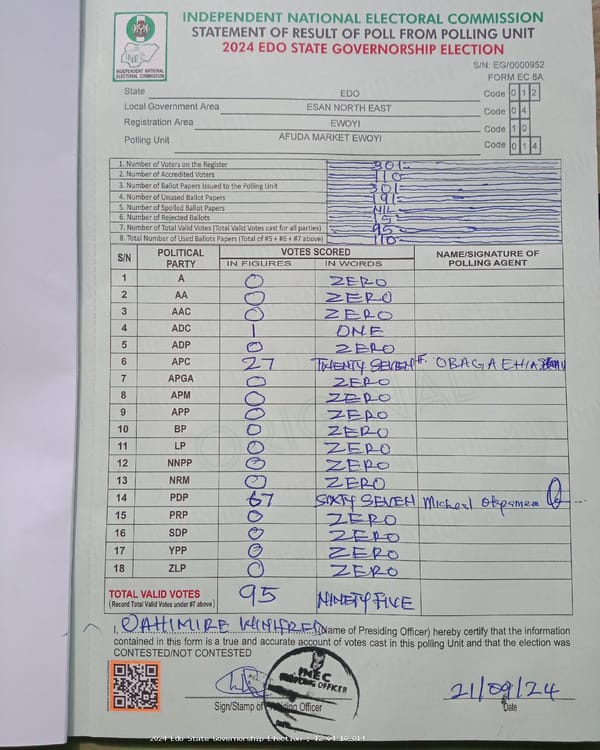 INDEPENDENT NATIONAL ELECTORAL COMMISSION
STATEMENT OF RESULT OF POLL FROM POLLING UNIT
2024 EDO STATE GOVERNORSHIP ELECTION
INEC
INDEPENDENT NATIONAL
ELECTORAL COMMISSION
S/N: EG/0000952
FORM EC 8A
State EDO Code 0 1 2
Local Government Area ESAN NORTH EAST Code 0 4
Registration Area EWOYI Code 1 0
Polling Unit AFUDA MARKET EWOYI Code 0 1 4
1. Number of Voters on the Register 301
2. Number of Accredited Voters 110
3. Number of Ballot Papers Issued to the Polling Unit 301
4. Number of Unused Ballot Papers 191
5. Number of Spoiled Ballot Papers NIL
6. Number of Rejected Ballots 15
7. Number of Total Valid Votes (Total Valid Votes cast for all parties) 95
8. Total Number of Used Ballots Papers (Total of #5 + #6 + #7 above) 110
S/N POLITICAL PARTY VOTES SCORED NAME/SIGNATURE OF POLLING AGENT
IN FIGURES IN WORDS
1 A 0 ZERO
2 AA 0 ZERO
3 AAC 0 ZERO
4 ADC 1 ONE
5 ADP 0 ZERO
6 APC 27 TWENTY SEVEN OBAGA
7 APGA 0 ZERO
8 APM 0 ZERO
9 APP 0 ZERO
10 BP 0 ZERO
11 LP 0 ZERO
12 NNPP 0 ZERO
13 NRM 0 ZERO
14 PDP 67 SIXTY SEVEN Micheal
15 PRP 0 ZERO
16 SDP 0 ZERO
17 YPP 0 ZERO
18 ZLP 0 ZERO
TOTAL VALID VOTES 95 NINETY FIVE
(Record Total Valid Votes under #7 above)
I, OAHIMIRE WINIFRED (Name of Presiding Officer) hereby certify that the information
contained in this form is a true and accurate account of votes cast in this polling Unit and that the election was
CONTESTED/NOT CONTESTED
INEC
PRESIDING OFFICER
21/09/24
Sign/Stamp of Presiding Officer Date
ORIGINAL
2024 Edo State Governorship Election : 12-04-10-014